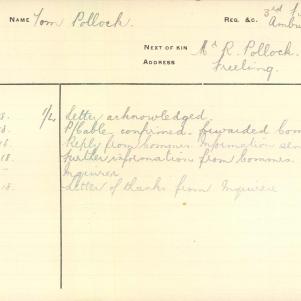 NAME Tom Pollock. REG. &C. 3rd
Ambu
NEXT OF KIN Mr R. Pollock.
ADDRESS Freeling.
8. 1/2 Letter acknowledged
8. P/Cable, confirmed. forwarded
18. Reply from Information
18. further information from
Inquirer
18. Letter of thanks from Inquirer